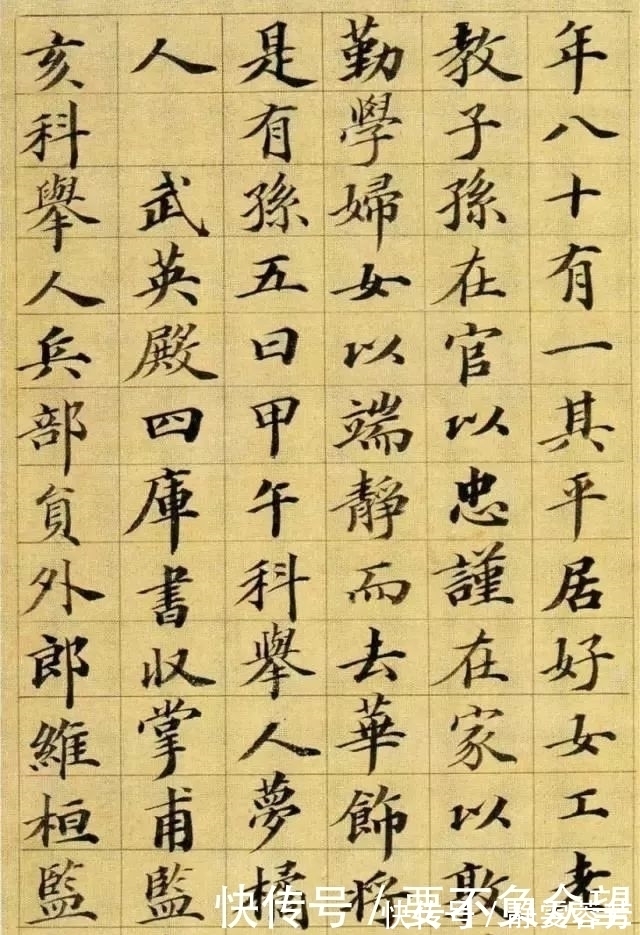 年八十有一其平居好女工
教子孫在官以忠謹在家以敦
勤學婦女以端靜而去華飾
是有孫五曰甲午科舉人夢
人 武英殿四庫書收掌甫監
亥科舉人兵部員外郎維桓監
快传号 /
快传号 /